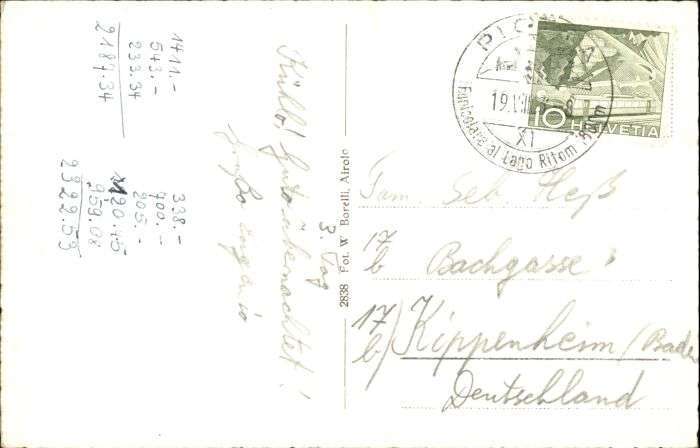 1411.-
543.-
233.34
2187.34
338.-
700.-
205.-
120.45
959.08
2322.53
3. Tag
Gut übernachtet!
2838 Fot. W Borelli, Airolo
PIO
19.VIII
XI
Funicolare al Lago Ritom
10 HELVETIA
Fam. Seb. Heß
17
b Bachgasse
17
b/ Kippenheim/Baden
Deutschland